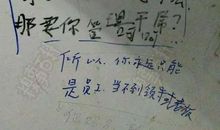 那要你管理干属?
所以,你永远只能
是员工,当不到领导或老板